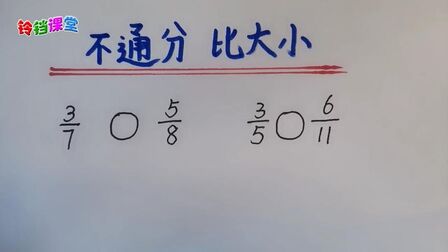 铃铛课堂
不通分 比大小
3/7 ○ 5/8 3/5 ○ 6/11